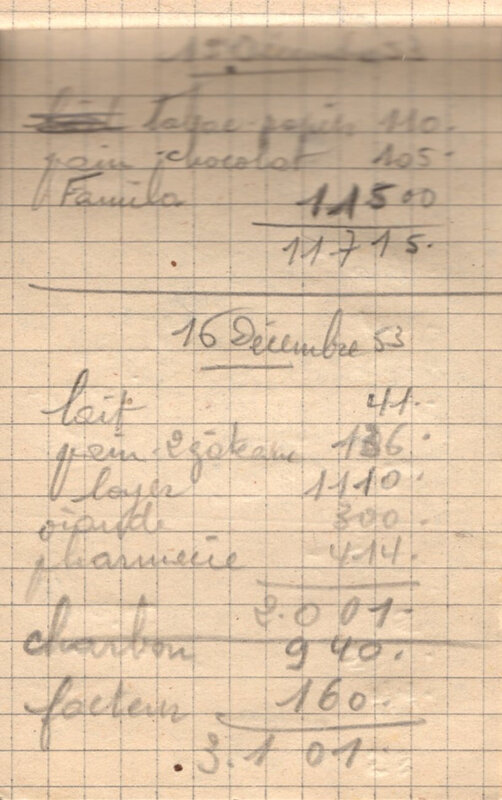 15 Décembre 53
Tabac-papier 110.
pain chocolat 105-
Famila 11500
11715.
16 Décembre 53
lait 41.
pain-2 gâteaux 136.
loyer 1110.
viande 300.
pharmacie 414.
2.001-
charbon 940.
facteur 160.
3.101.